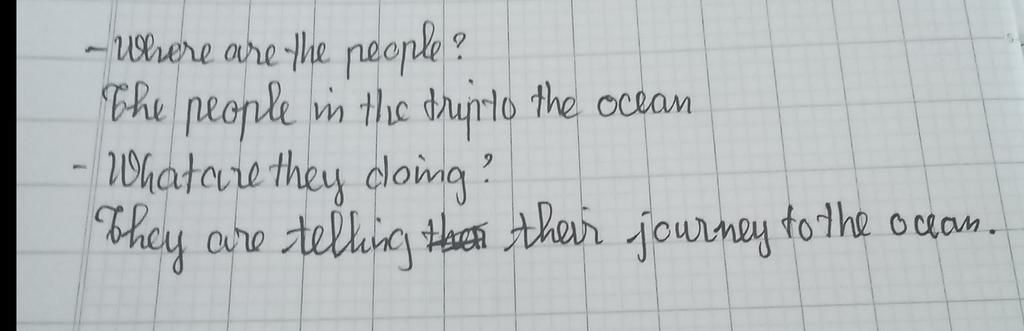 - Where are the people?
The people in the trip to the ocean
- What are they doing?
They are telling their journey to the ocean.